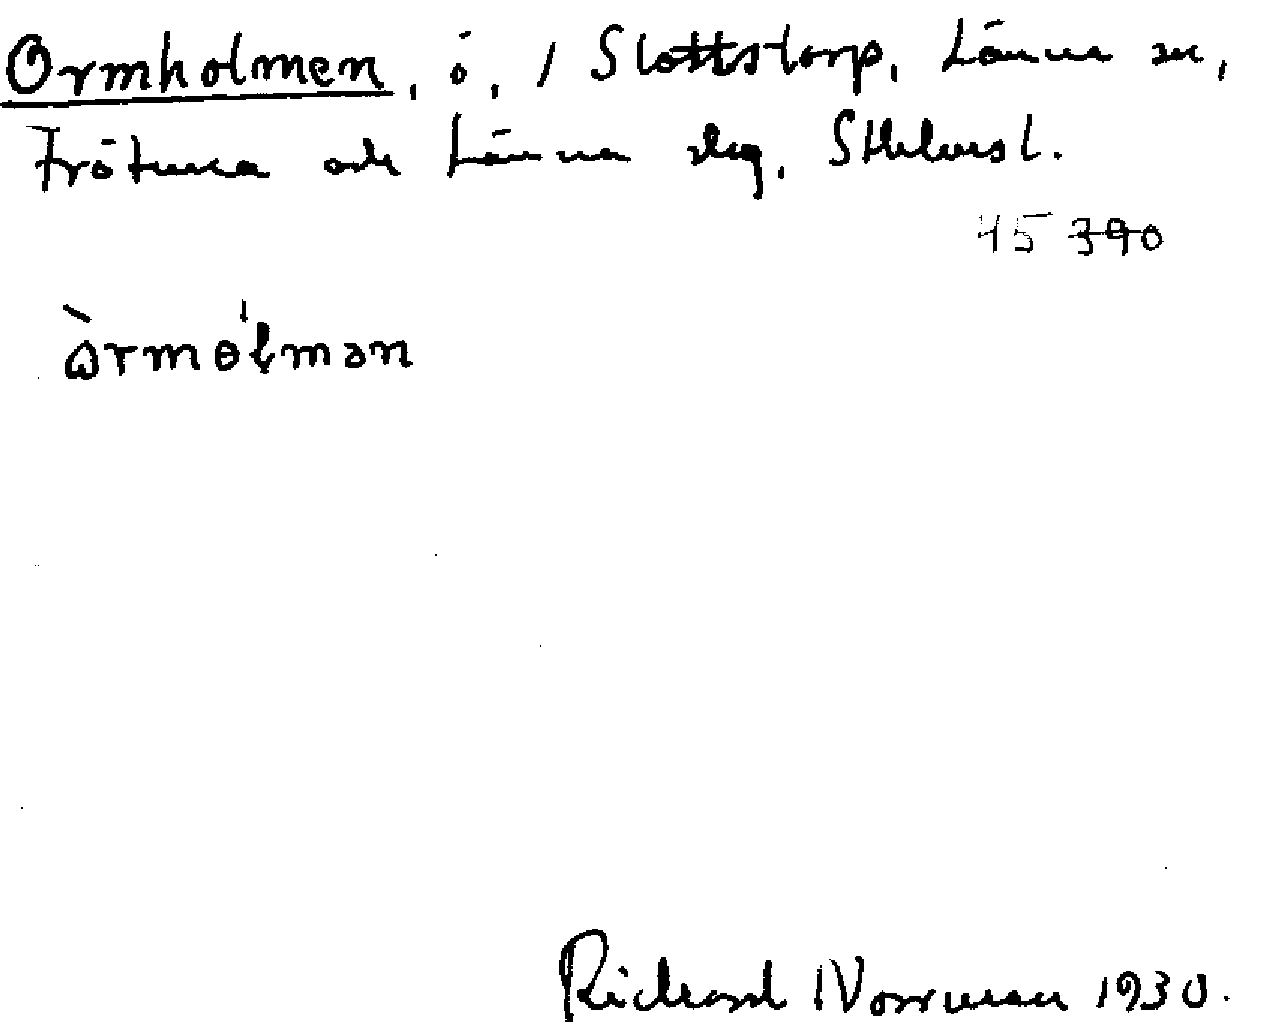 Ormholmen, ö, / Slottstorp, Länna sn,
Frötuna och Länna slg, Sthlms l.
45 390
òrmɵ̍lmən
Richard Norrman 1930.